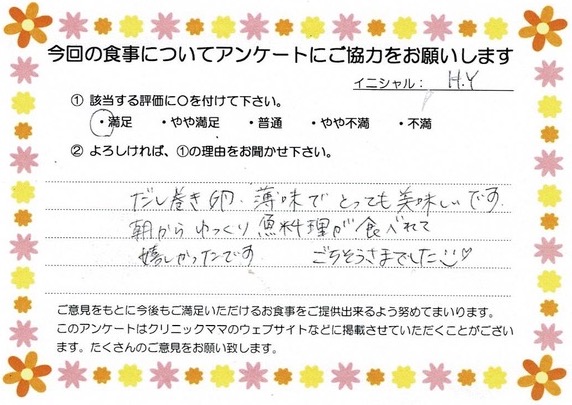 今回の食事についてアンケートにご協力をお願いします
イニシャル： H.Y
① 該当する評価に○を付けて下さい。
・満足 ・やや満足 ・普通 ・やや不満 ・不満
② よろしければ、①の理由をお聞かせ下さい。
だし巻き卵、薄味でとっても美味しいです。
朝からゆっくり魚料理が食べれて
嬉しかったです ごちそうさまでした
ご意見をもとに今後もご満足いただけるお食事をご提供出来るよう努めてまいります。
このアンケートはクリニックママのウェブサイトなどに掲載させていただくことがござい
ます。たくさんのご意見をお願い致します。